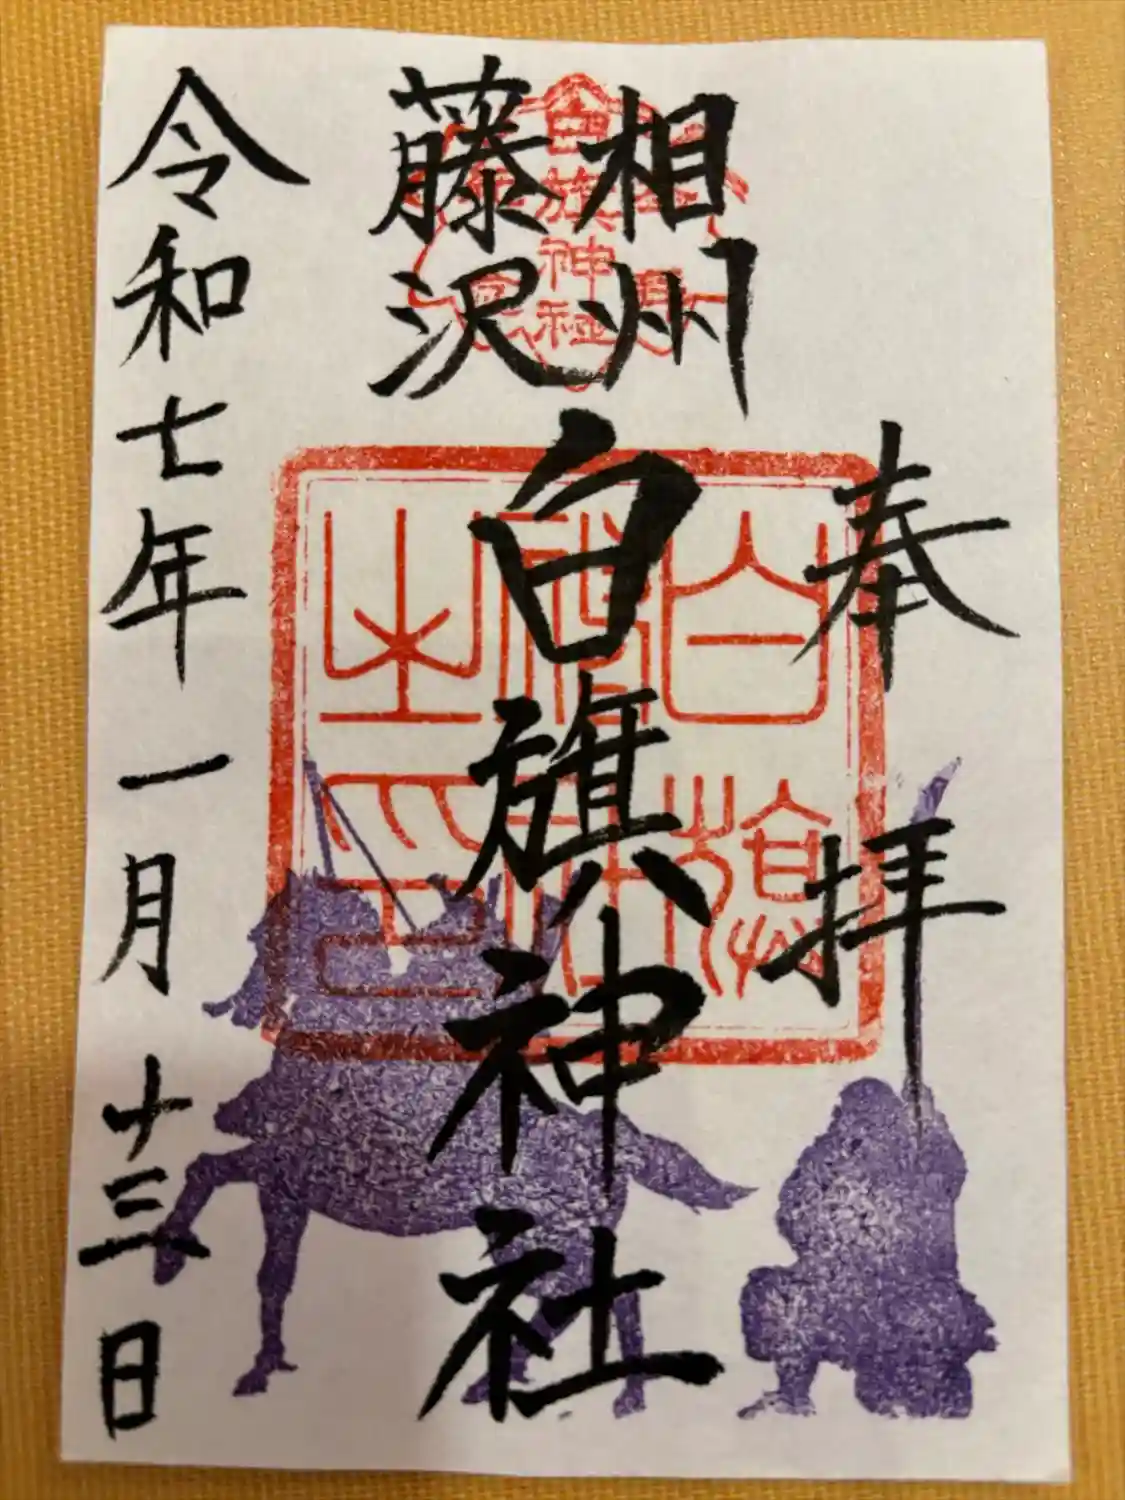 奉拝
相州
藤沢
白旗神社
令和七年一月十三日
白旗神社
白旗神社之印